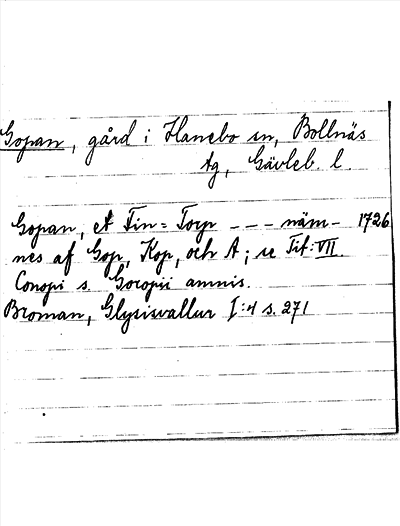 Gopan, gård i Hanebo sn, Bollnäs
tg, Gävleb. l.
Gopan, et Fin= Torp - - - näm- 1726
nes af Gop, Kop, och A; se Tit: VII.
Conopi s. Goropii amnis.
Broman, Glysisvallur I:4 s. 271